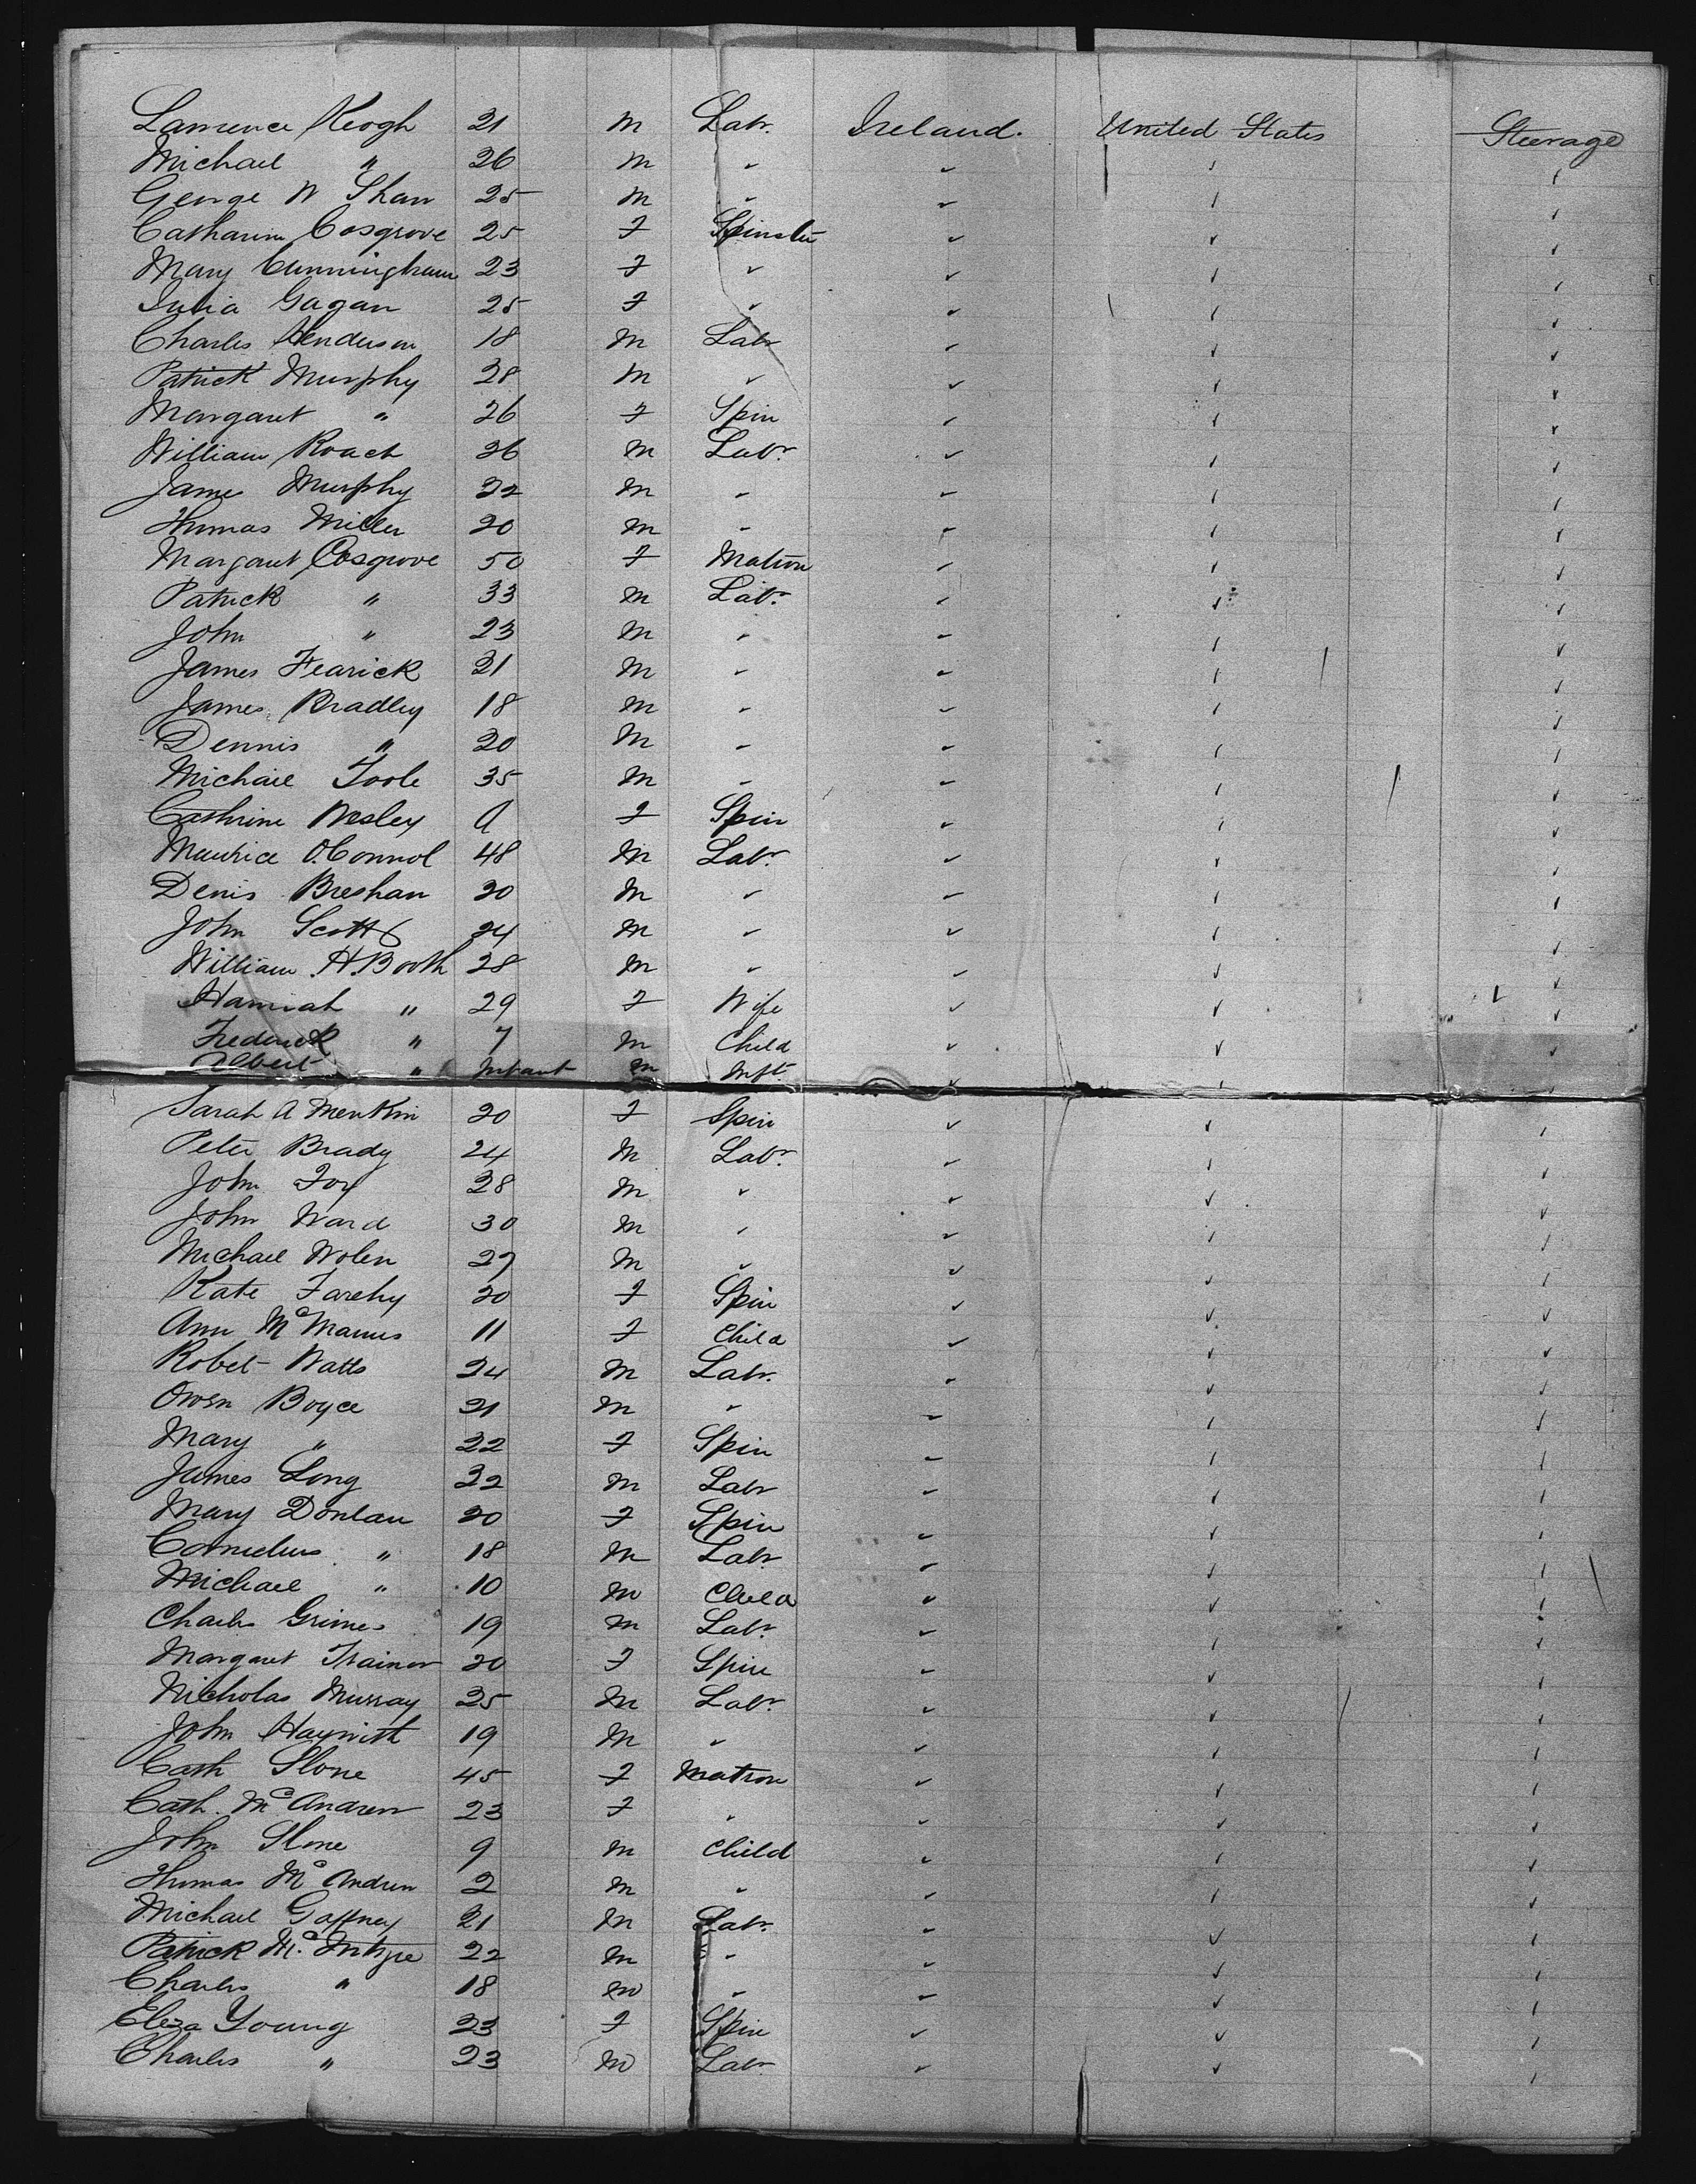 Lawrence Keogh 21 m Labr. Ireland. United States Steerage
Michael " 26 m " " " "
George W Shaw 25 m " " " "
Catharine Cosgrove 25 F Spinster " " "
Mary Cunningham 23 F " " " "
Julia Gagan 25 F " " " "
Charles Henderson 18 m Labr " " "
Patrick Murphy 28 m " " " "
Margaret " 26 F Spin " " "
William Roach 26 m Labr. " " "
James Murphy 22 m " " " "
Thomas Miller 20 m " " " "
Margaret Cosgrove 50 F Matron " " "
Patrick " 33 m Labr. " " "
John " 23 m " " " "
James Fearick 21 m " " " "
James Bradley 18 m " " " "
Dennis " 20 m " " " "
Michael Toole 35 m " " " "
Cathrine Wesley F Spin " " "
Maurice O.Connol 48 m Labr. " " "
Denis Breshan 20 m " " " "
John Scott 24 m " " " "
William H. Booth 28 m " " " "
Hannah " 29 F Wife " " "
Frederick " 7 m Child " " "
Albert " Infant m Inft. " " "
Sarah A 20 F Spin " " "
Peter Brady 24 m Labr. " " "
John Fox 28 m " " " "
John Ward 30 m " " " "
Michael Nolen 27 m " " " "
Kate Farehy 20 F Spin " " "
Ann McManus 11 F Child " " "
Robet Watts 24 m Labr. " " "
Owen Boyce 21 m " " " "
Mary " 22 F Spin " " "
James Long 22 m Labr " " "
Mary Donlan 20 F Spin " " "
Cornelius " 18 m Labr " " "
Michael " 10 m Child " " "
Charles Grimes 19 m Labr. " " "
Margaret Trainor 20 F Spin " " "
Nicholas Murray 25 m Labr. " " "
John 19 m " " " "
Cath Slone 45 F Matron " " "
Cath. McAndrew 23 F " " " "
John Slone 9 m Child " " "
Thomas McAndrew 2 m " " " "
Michael Gaffney 21 m Labr. " " "
Patrick McIntyre 22 m " " " "
Charles " 18 m " " " "
Eliza Young 23 F Spin " " "
Charles " 23 m Labr " " "